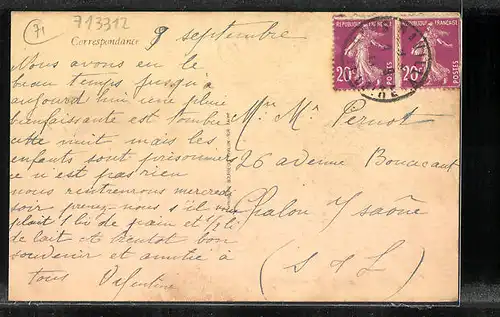 71
713312
Correspondance
9 septembre
Nous avons eu le
beau temps jusqu'à
aujourd'hui une pluie
bienfaisante est tombée
cette nuit mais les
enfants sont prisonniers
ce n'est pas rien
nous rentrerons mercredi
soir prenez nous s'il vous
plait 1 liv de pain et 1/2 li
de lait et bientot bon
souvenir et amitié à
tous Valentine
REPUBLIQUE FRANÇAISE
20c
POSTES
REPUBLIQUE FRANÇAISE
20c
POSTES
Mr Me Pernot
26 avenue Boucicaut
Chalon s/ saône
(S et L)